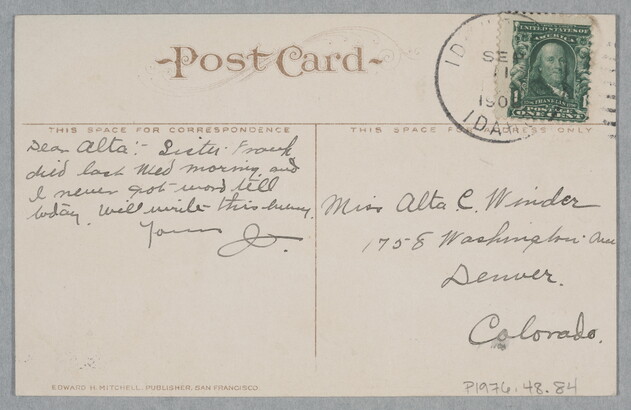 Post Card
IDA
SE
11
190
IDAHO
UNITED STATES OF
AMERICA
FRANKLIN
1 POSTAGE 1
ONE CENT
THIS SPACE FOR CORRESPONDENCE
THIS SPACE FOR ADDRESS ONLY
Dear Alta:- Sister Frank
died last Wed morning and
I never got word till
today. Will write this evening.
Yours J.
Miss Alta C. Winder
1758 Washington Ave
Denver.
Colorado.
EDWARD H. MITCHELL, PUBLISHER, SAN FRANCISCO.
P1976.48.84